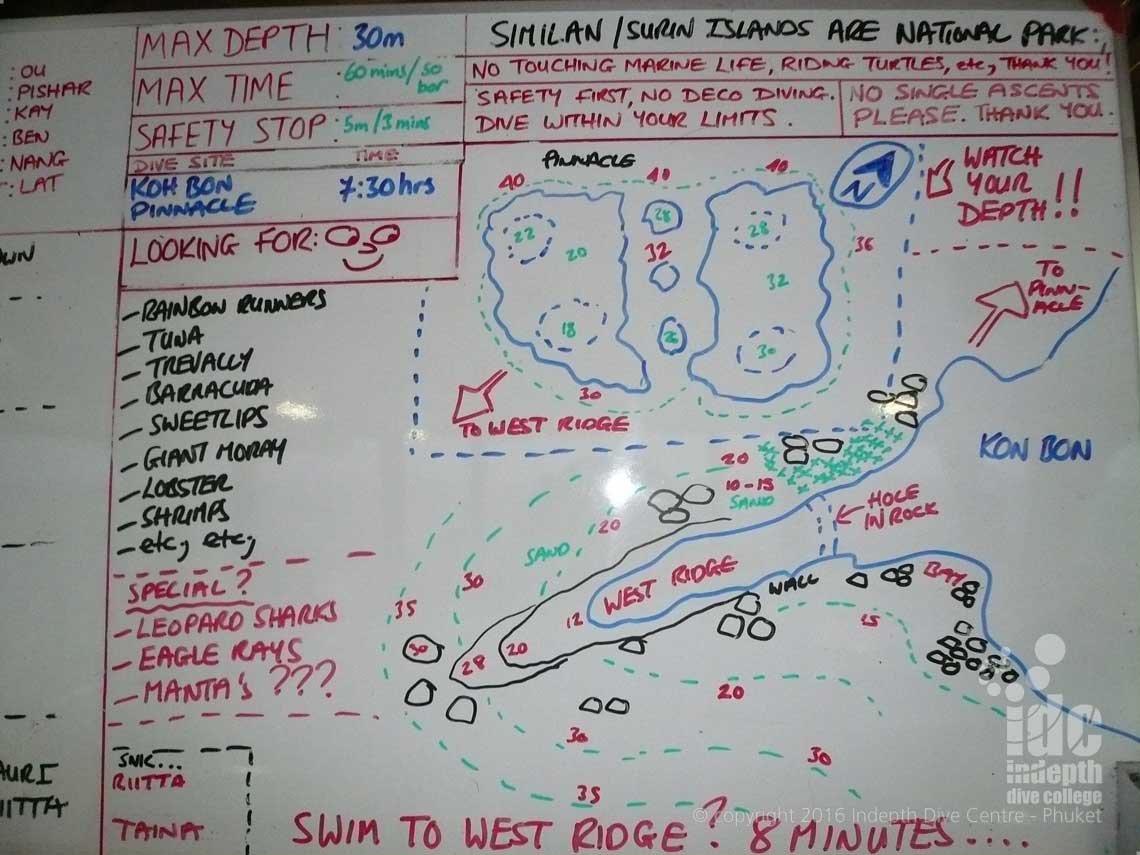 : OU
: PISHAR
: KAY
: BEN
: NANG
: LAT
MAX DEPTH : 30m
MAX TIME : 60 mins/50 bar
SAFETY STOP : 5m/3mins
DIVE SITE TIME
KOH BON PINNACLE 7:30hrs
LOOKING FOR:
SIMILAN/SURIN ISLANDS ARE NATIONAL PARK:,
NO TOUCHING MARINE LIFE, RIDING TURTLES, etc, THANK YOU!
SAFETY FIRST, NO DECO DIVING.
DIVE WITHIN YOUR LIMITS.
NO SINGLE ASCENTS
PLEASE. THANK YOU.
- RAINBOW RUNNERS
- TUNA
- TREVALLY
- BARRACUDA
- SWEETLIPS
- GIANT MORAY
- LOBSTER
- SHRIMPS
- etc, etc,
SPECIAL?
- LEOPARD SHARKS
- EAGLE RAYS
- MANTA'S ???
SNK...
RIITTA
TAINA
PINNACLE
40
40
40
N
WATCH
YOUR
DEPTH!!
22
20
28
32
28
32
36
18
26
30
30
TO WEST RIDGE
TO
PINN-
ACLE
KON BON
20
10-15
SAND
20
HOLE
IN ROCK
SAND
30
WEST RIDGE
WALL
BAY
35
12
15
30
28
20
20
30
30
35
SWIM TO WEST RIDGE? 8 MINUTES....
idc
indepth
dive college
© Copyright 2016 Indepth Dive Centre - Phuket